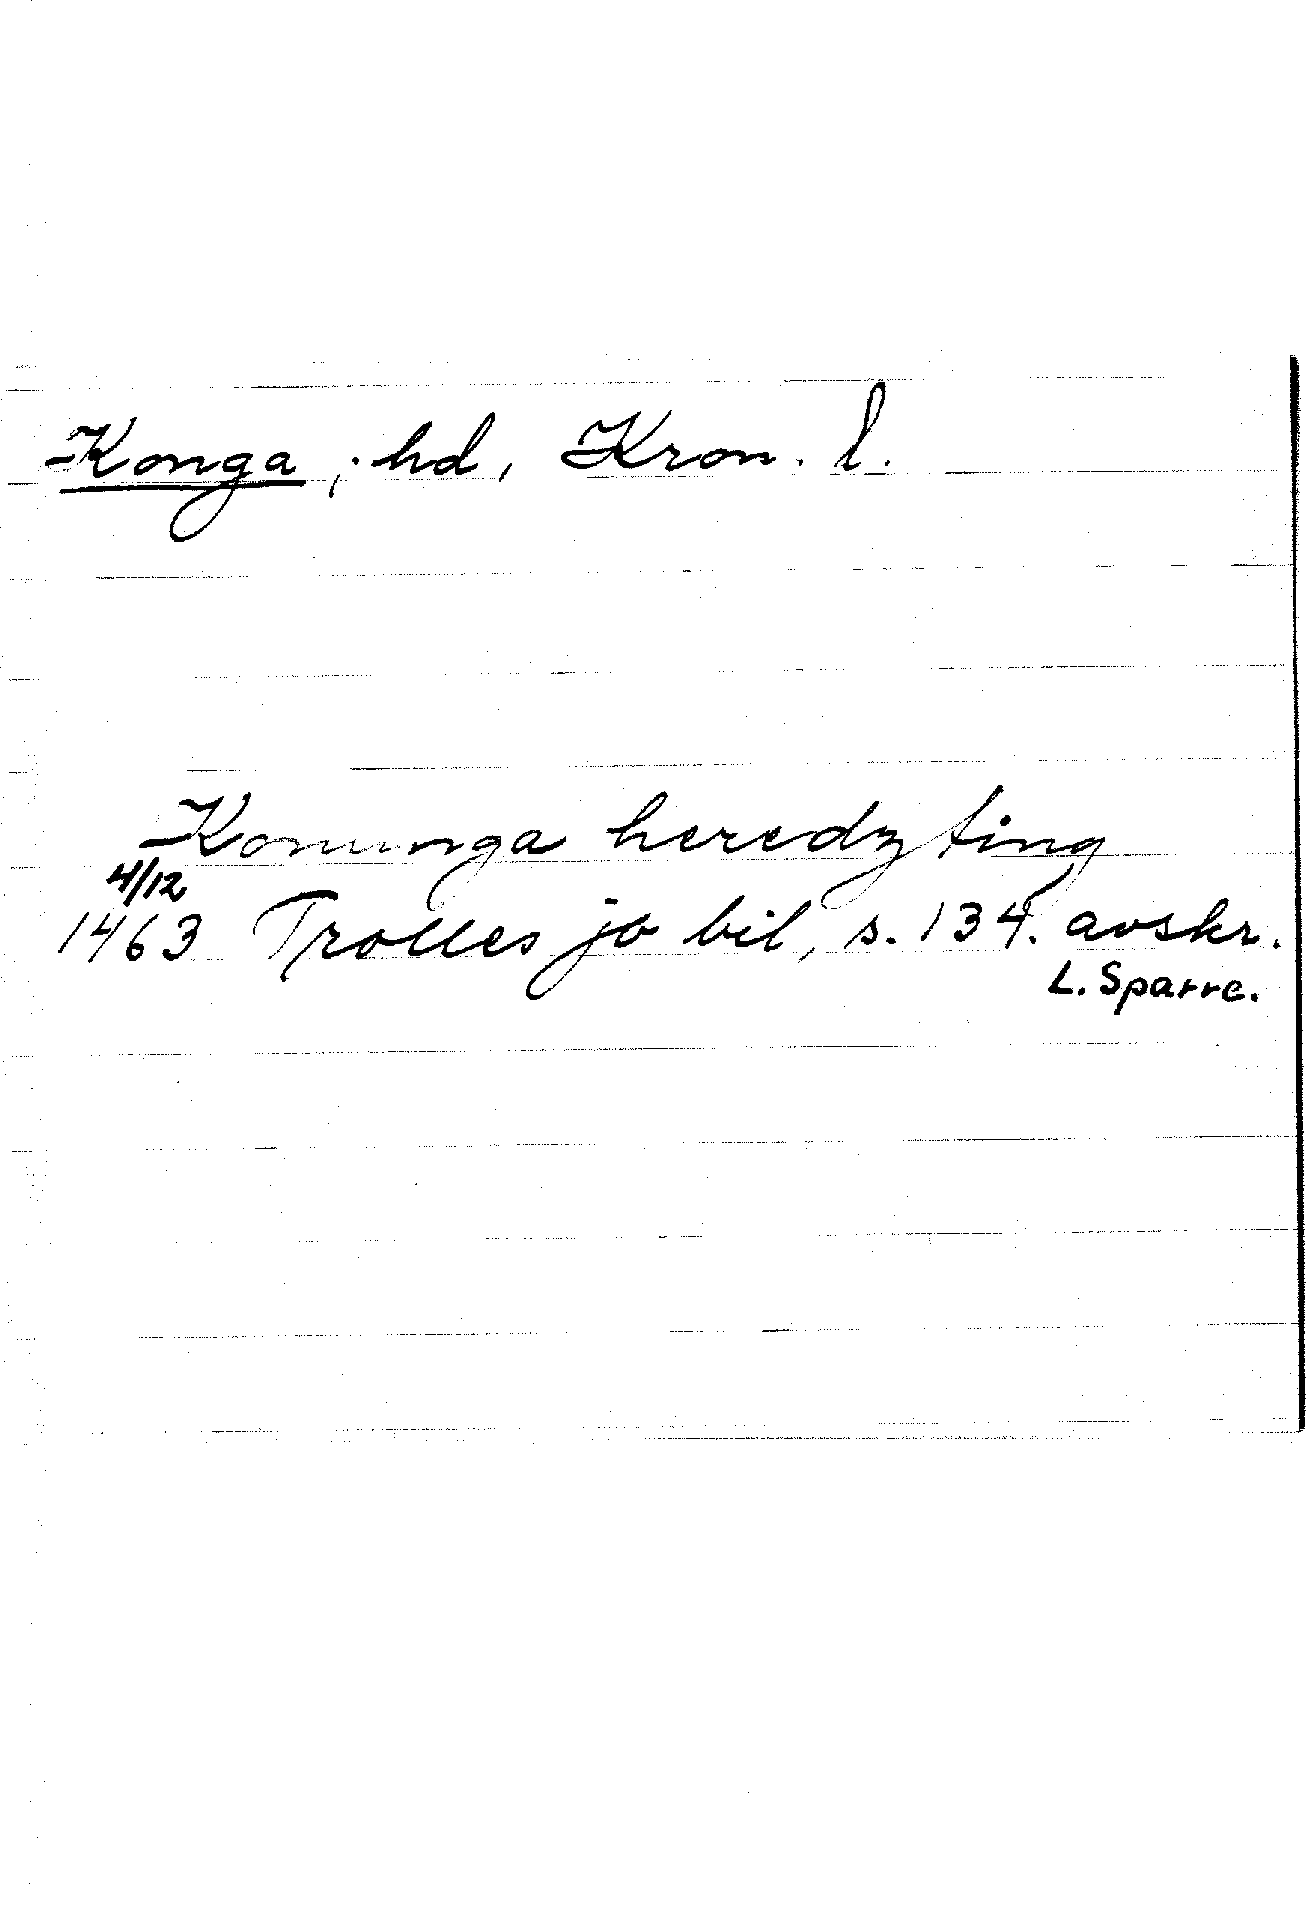 Konga, hd, Kron. l.
Konunga heredz ting
4/12
1463 Trolles jo bil, s. 134. avskr.
L. Sparre.